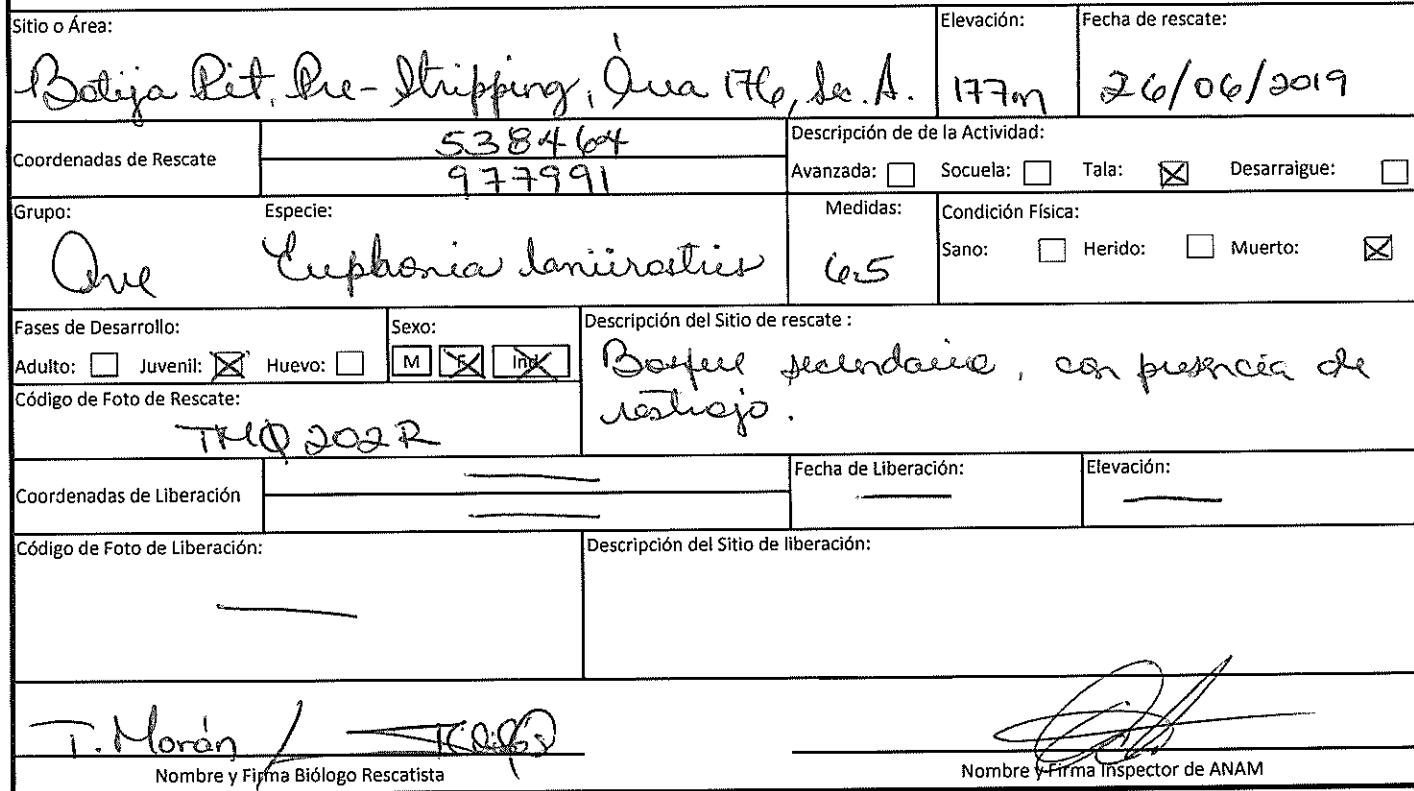 Sitio o Área:
Botija Pit, Pre-Stripping, Área 176, Sec. A.
Elevación:
177m
Fecha de rescate:
26/06/2019
Coordenadas de Rescate
538464
977991
Descripción de de la Actividad:
Avanzada: Socuela: Tala: Desarraigue:
Grupo:
Ave
Especie:
Euphonia laniirostris
Medidas:
6.5
Condición Física:
Sano: Herido: Muerto:
Fases de Desarrollo:
Adulto: Juvenil: Huevo:
Sexo:
M F Ind
Descripción del Sitio de rescate :
Bosque secundario, con presencia de
rastrojo.
Código de Foto de Rescate:
TMQ 202R
Coordenadas de Liberación
Fecha de Liberación:
Elevación:
Código de Foto de Liberación:
Descripción del Sitio de liberación:
T. Morán /
Nombre y Firma Biólogo Rescatista
Nombre y Firma Inspector de ANAM